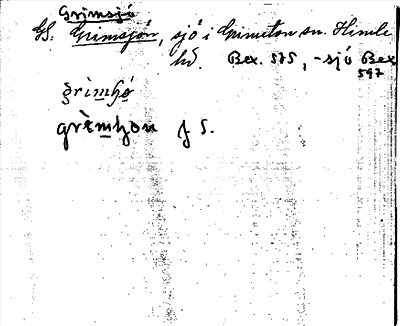 Grimsjö
GS. Grimsjön, sjö i Grimeton sn. Himle
hd. Bex. 575, -sjö Bex
597
grìmɧø
grèmɧon f S.